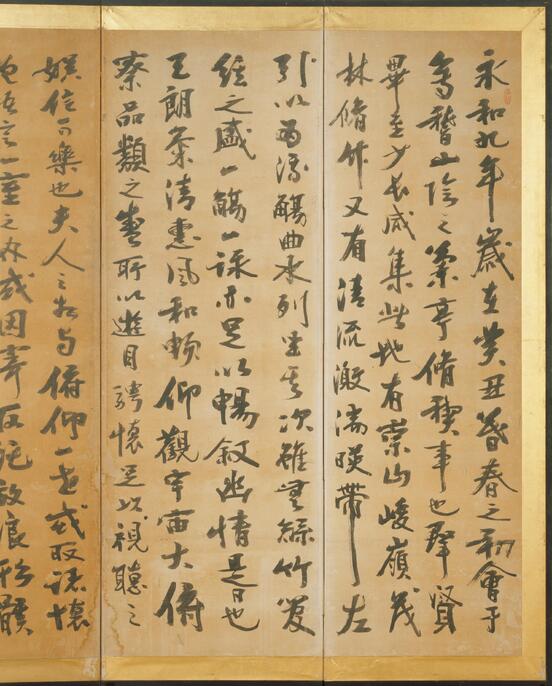 永和九年歳在癸丑暮春之初會于
會稽山陰之蘭亭脩稧事也羣賢
畢至少長咸集此地有崇山峻嶺茂
林脩竹又有清流激湍暎帶左
引以為流觴曲水列坐其次雖無絲竹管
絃之盛一觴一詠亦足以暢敘幽情是日也
天朗氣清惠風和暢仰觀宇宙大俯
察品類之盛所以遊目騁懷足以視聽之
娛信可樂也夫人之相與俯仰一世或取諸懷
抱悟言一室之內或因寄所託放浪形骸